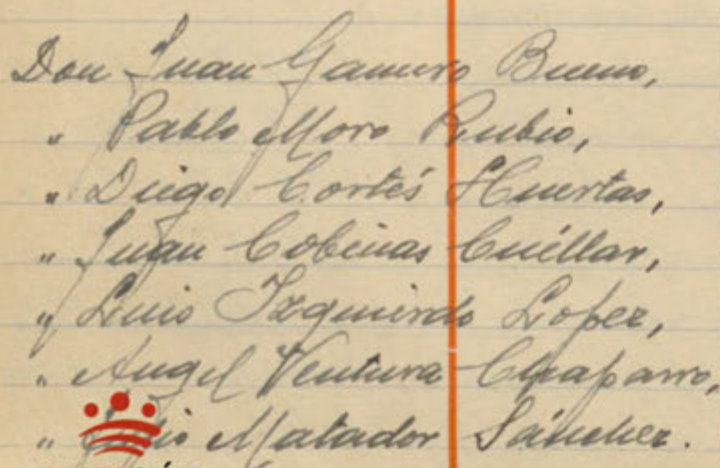 Don Juan Gamero Bueno,
" Pablo Moro Rubio,
" Diego Cortés Huertas,
" Juan Cobeñas Cuéllar,
" Luis Izquierdo Lopez,
" Angel Ventura Chaparro,
" Julio Matador Sánchez.